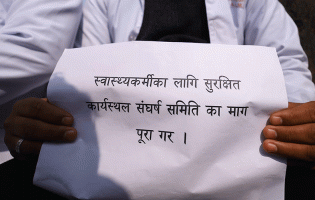 स्वास्थ्यकर्मीका लागि सुरक्षित
कार्यस्थल संघर्ष समिति का माग
पूरा गर ।